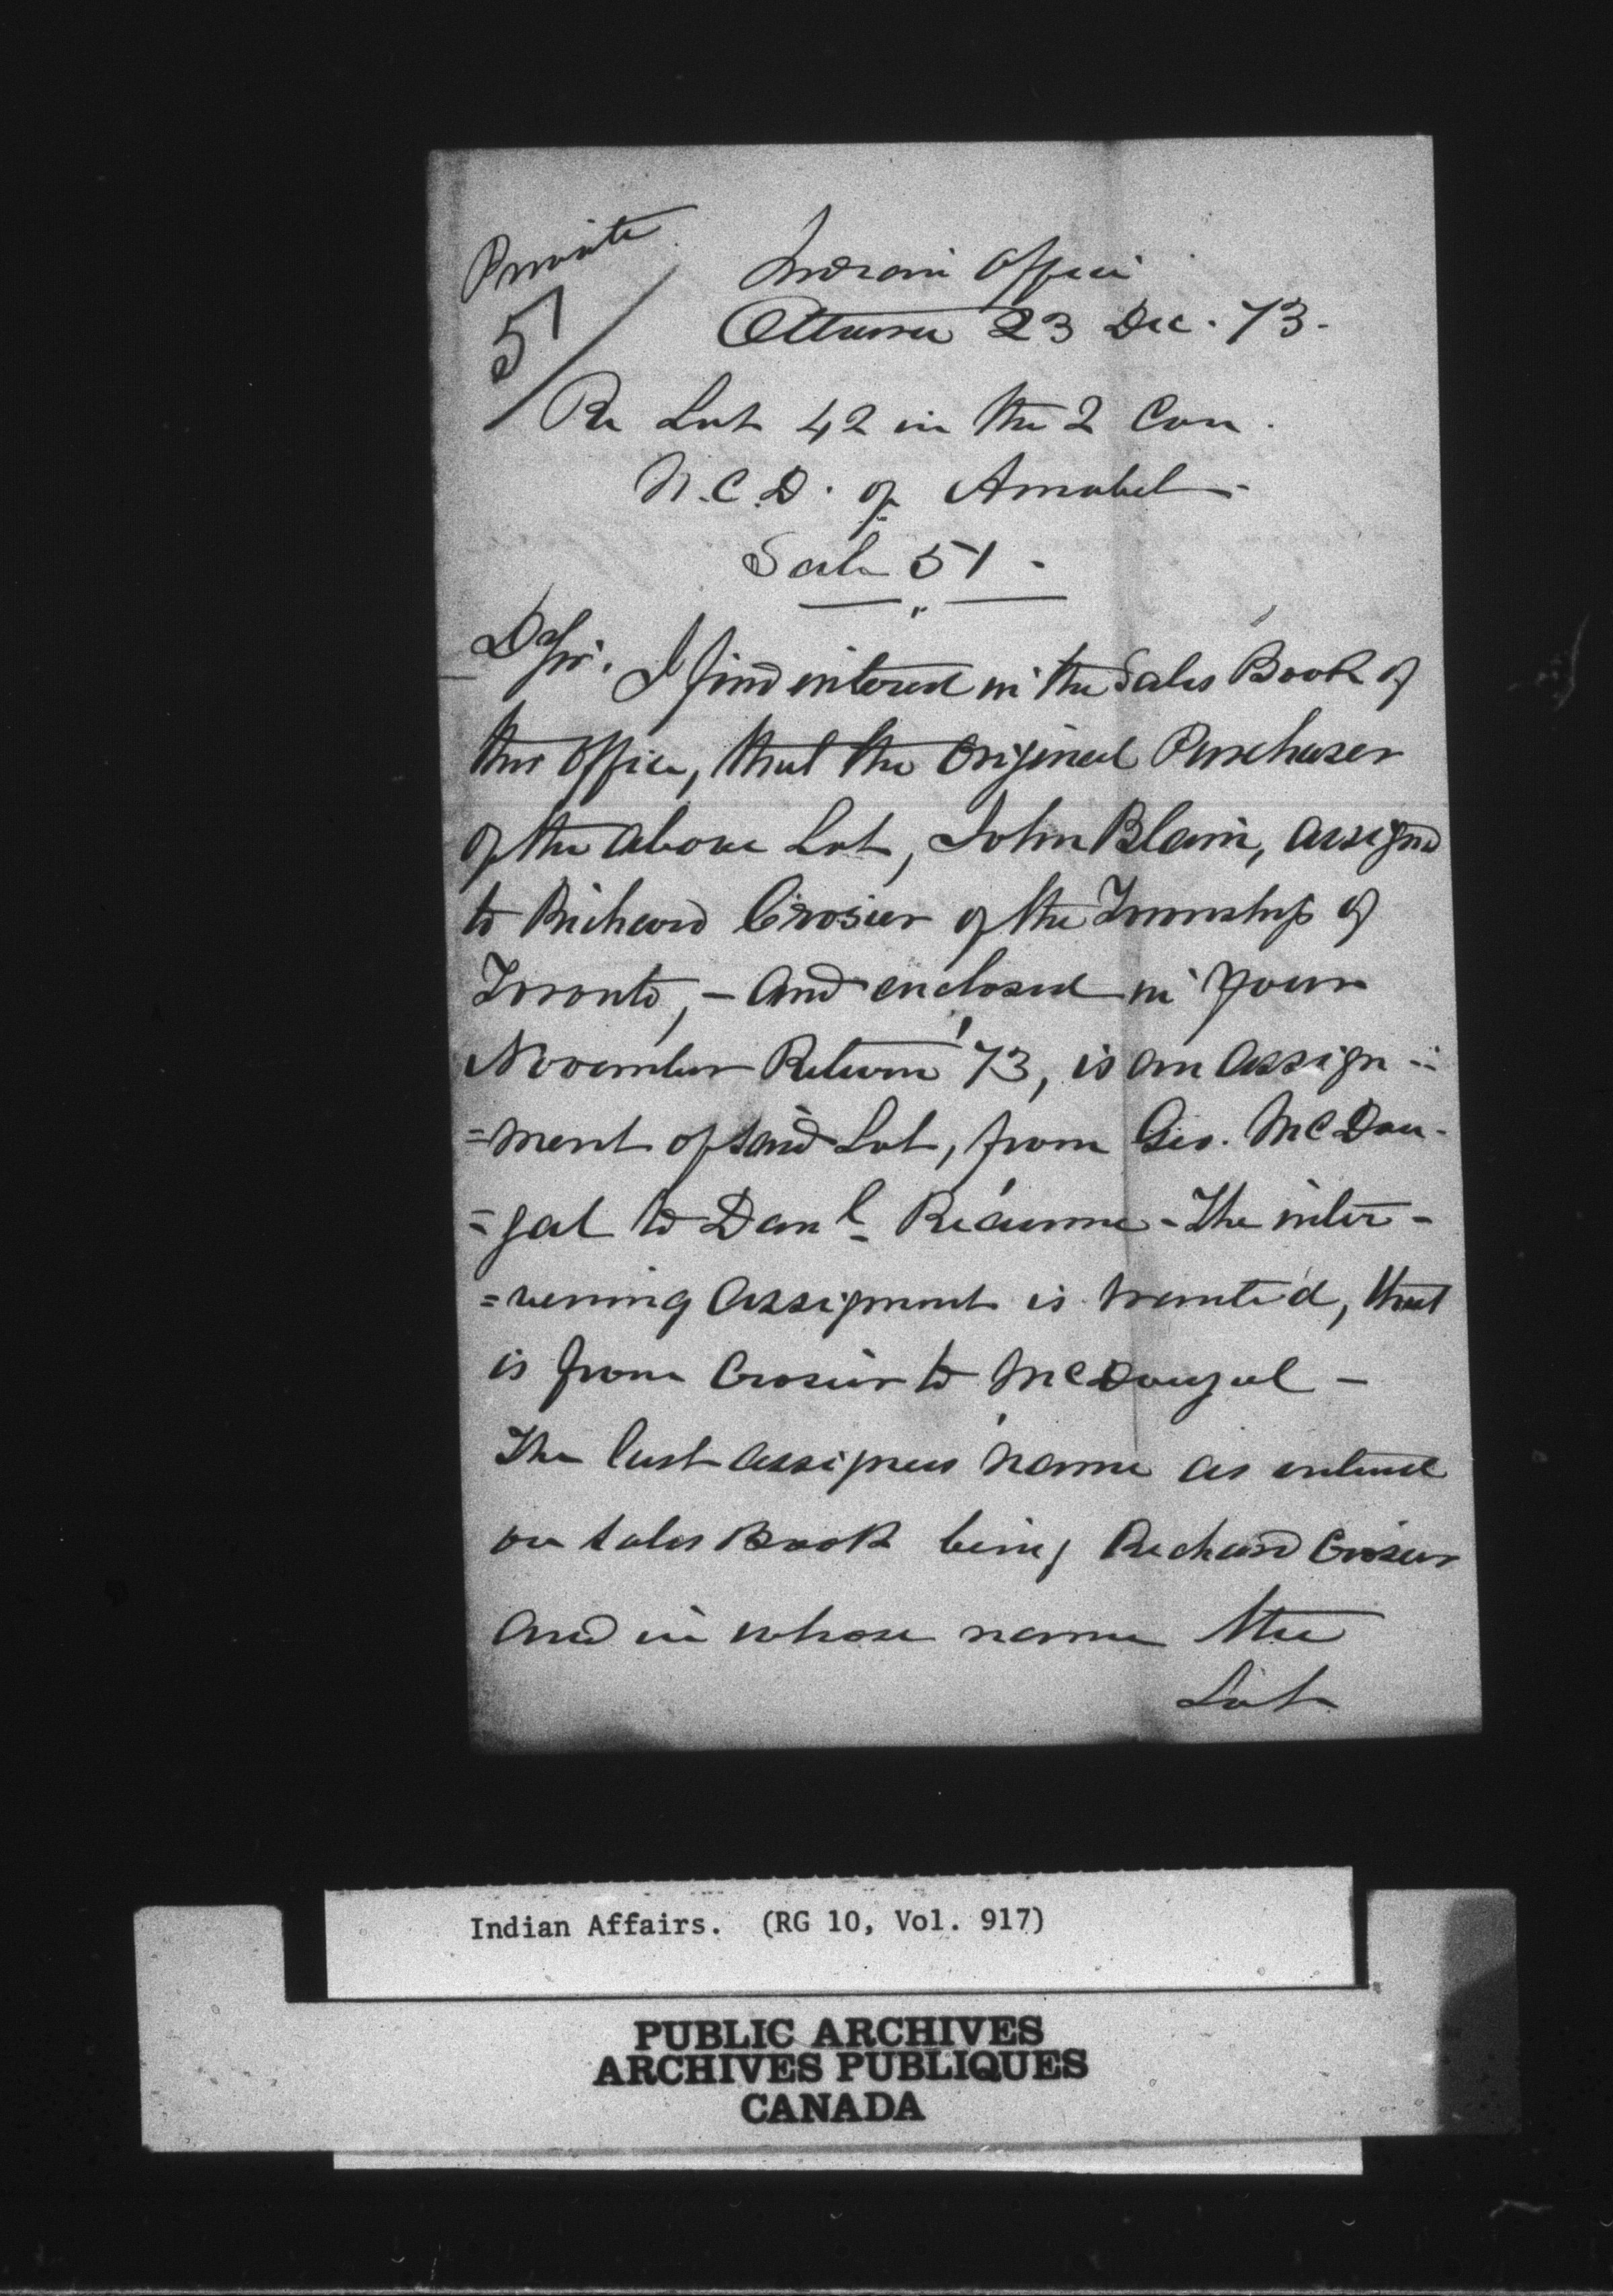 Private
51
Indian Office
Ottawa 23 Dec. 73.
Re Lot 42 in the 2 Con.
N.C.D. of Amabel -
Sale 51 -
D Sir. I find entered in the Sales Book of
this Office, that the Original Purchaser
of the above Lot, John Blain, assigned
to Richard Crosier of the Township of
Toronto, - and enclosed in your
November Return '73, is an assign-
=ment of said Lot, from Geo. McDou-
=gal to Danl Réaume - The inter-
=vening assignment is wanted, that
is from Crosier to McDougal -
The last assignees name as entered
on Sales Book being Richard Crosier
and in whose name the
Lot
Indian Affairs. (RG 10, Vol. 917)
PUBLIC ARCHIVES
ARCHIVES PUBLIQUES
CANADA